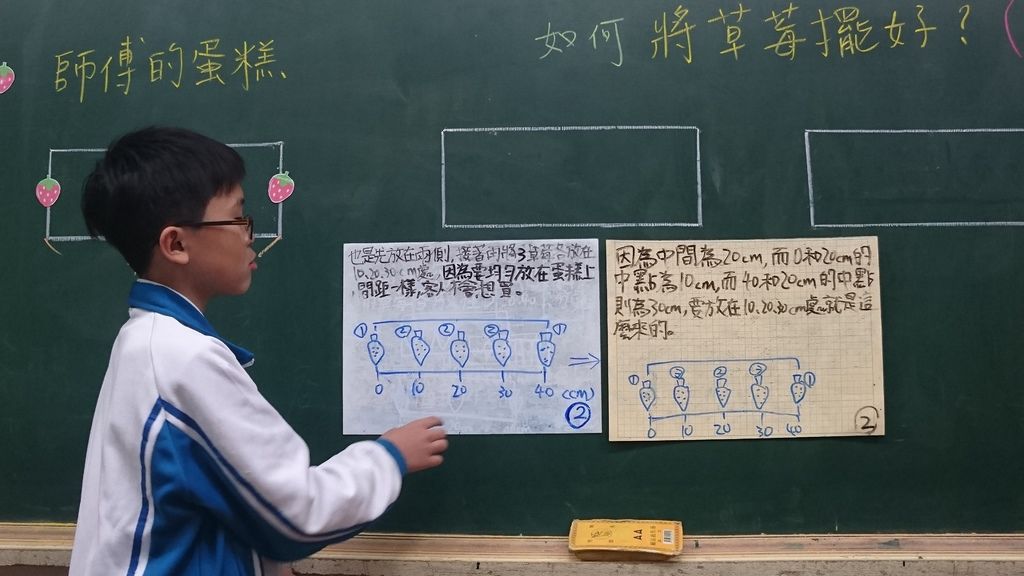 師傅的蛋糕
如何將草莓擺好?
也是先放在兩側,接著則將3草莓各放在
10、20、30cm處,因為要均勻放在蛋糕上
間距一樣,客人才會想買。
① ② ② ② ①
0 10 20 30 40 (cm)
②
因為中間為20cm,而0和20cm的
中點為10cm,而40和20cm的中點
則為30cm,要放在10、20、30cm處就是這
麼來的。
① ② ② ② ①
0 10 20 30 40
②
AA